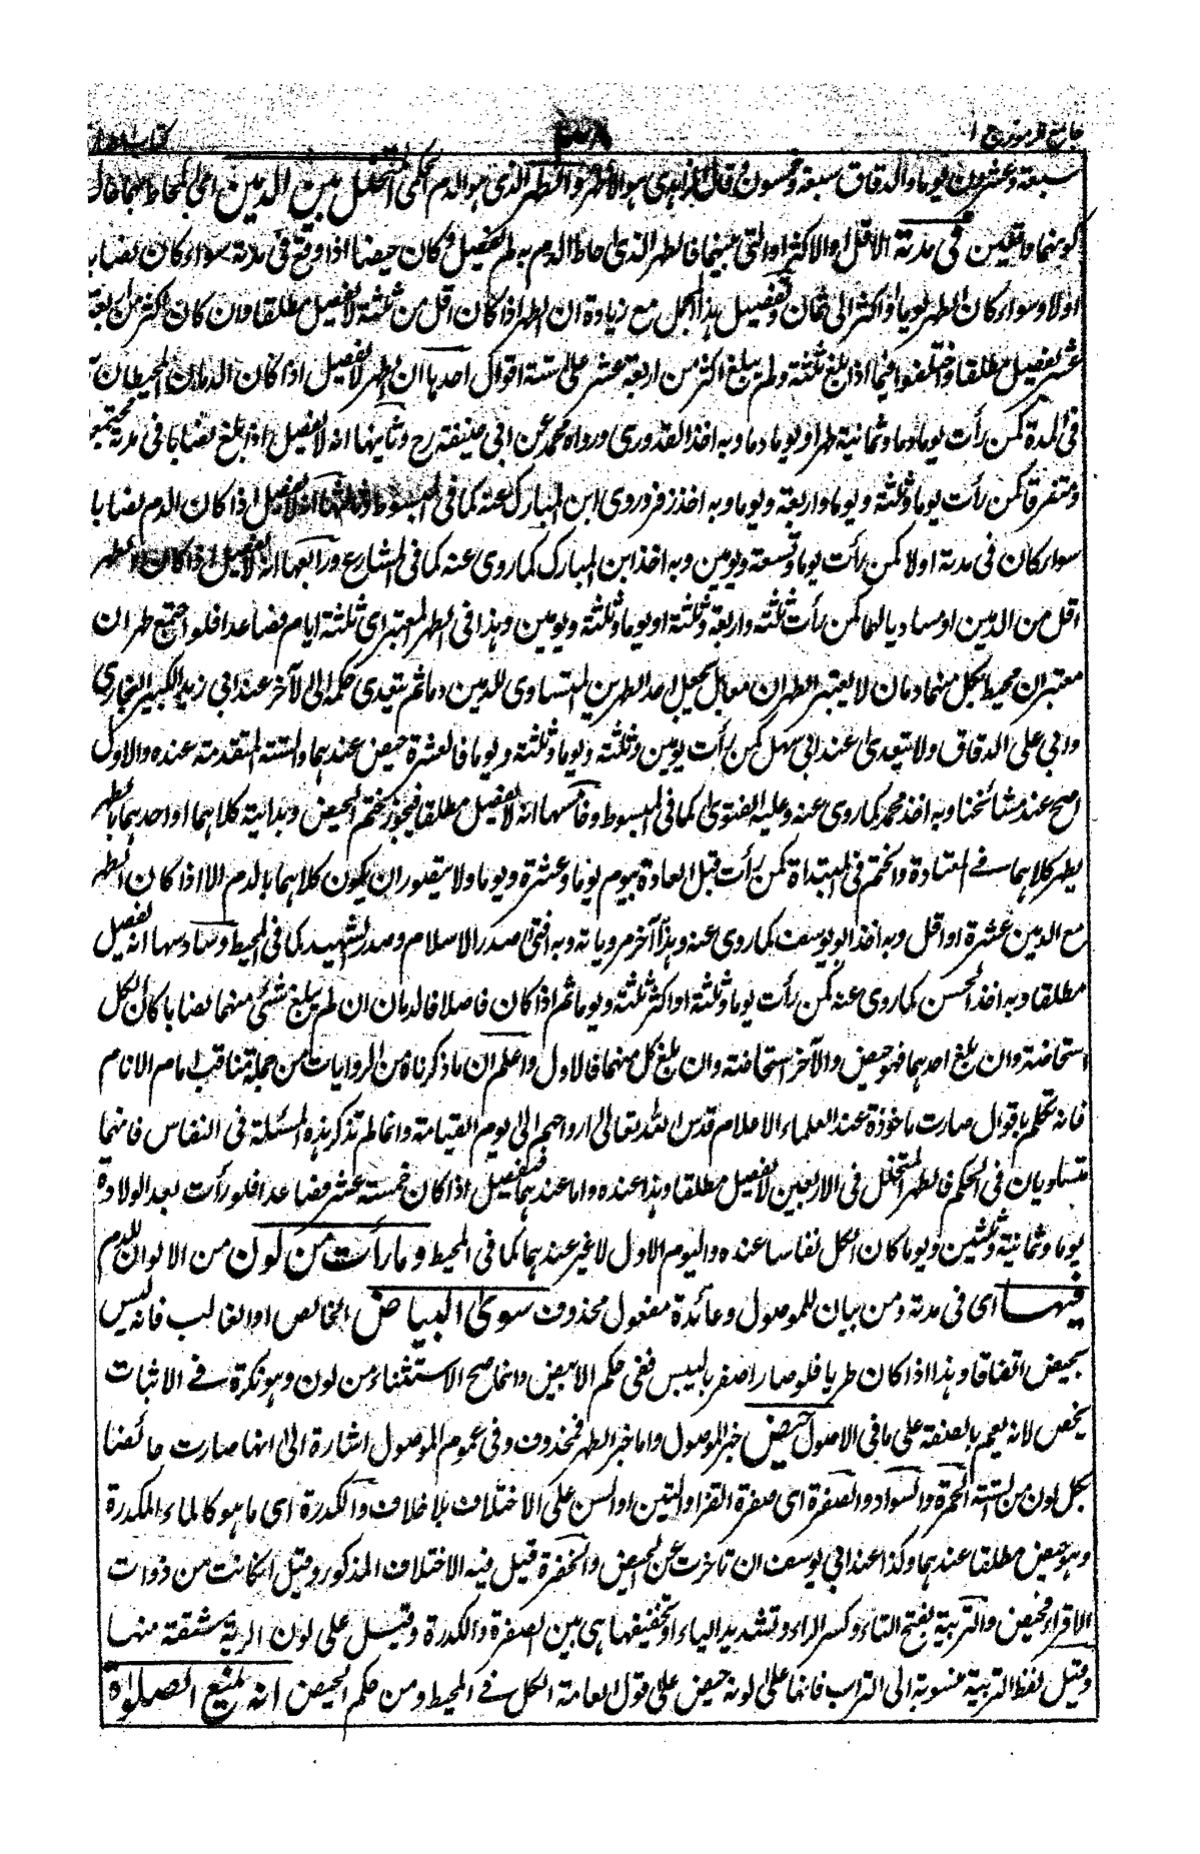 جامع الرموز ج ١
٣٨
كتاب الطهارة
سبعة وعشرون يوما والدقاق سبعة وخمسون وقال الزاهدى هو الاظهر والطهر الذى هو الدم الحكمى المتخلل بين الدمين اى المحاط بهما حال
كونهما واقعين فى مدته الاقل او الاكثر او التى بينهما فالطهر الذى احاط الدم به لم يفصل وكان حيضا اذا وقع فى مدته سواء كان نصابا
اولا وسواء كان الطهر يوما او اكثر الى ثمان وتفصيل هذا المجمل مع زيادة ان الطهر اذا كان اقل من ثلثة لا يفصل مطلقا وان كان اكثر من اربعة
عشر يفصل مطلقا واختلفوا فيما اذا بلغ ثلثة ولم يبلغ اكثر من اربعة عشر على ستة اقوال احدها ان الطهر لا يفصل اذا كان الدمان المحيطان به
فى المدة كمن رأت يوما دما وثمانية طهرا ويوما دما وبه اخذ القدورى ورواه محمد عن ابى حنيفة رح وثانيها انه لا يفصل اذا بلغ نصابا فى مدته مجتمعا
ومتفرقا كمن رأت يوما وثلثة ويوما واربعة ويوما وبه اخذ زفر وروى ابن المبارك عنه كما فى المبسوط وثالثها انه لا يفصل اذا كان الدم نصابا
سواء كان فى مدته اولا كمن رأت يوما وتسعة ويومين وبه اخذ ابن المبارك كما روى عنه كما فى المشارع ورابعها انه لا يفصل اذا كان الطهر
اقل من الدمين او مساويا لهما كمن رأت ثلثة واربعة وثلثة او يوما وثلثة ويومين وهذا فى الطهر المعتبر اى ثلثة ايام فصاعدا فلو اجتمع طهران
معتبران محيط بكل منهما دمان لا يعتبر الطهران معا بل يجعل احد الطهرين المتساوى للدمين دما ثم يتعدى حكمه الى الآخر عند ابى زيد الكبير البخارى
وابى على الدقاق ولا يتعدى عند ابى سهل كمن رأت يومين وثلثة ويوما وثلثة ويوما فالعشرة حيض عندهما والستة المتقدمة عنده والاول
اصح عند مشائخنا وبه اخذ محمد كما روى عنه وعليه الفتوى كما فى المبسوط وخامسها انه لا يفصل مطلقا فيجوز ختم الحيض وبدايته كلاهما او احدهما بالطهر
يطهر كلاهما فى المعتادة والختم فى المبتداة كمن رأت قبل العادة بيوم يوما وعشرة ويوما ولا يتصور ان يكون كلاهما بالدم الا اذا كان الطهر
مع الدمين عشرة او اقل وبه اخذ ابو يوسف كما روى عنه وهذا آخر مروياته وبه افتى صدر الاسلام وصدر الشهيد كما فى المحيط وسادسها انه يفصل
مطلقا وبه اخذ الحسن كما روى عنه كمن رأت يوما وثلثة او اكثر ثلثة ويوما ثم اذا كان فاصلا فالدمان ان لم يبلغ شئ منهما نصابا كان الكل
استحاضة وان بلغ احدهما فهو حيض والآخر استحاضة وان بلغ كل منهما فالاول واعلم ان ما ذكرناه من الروايات من جملة مناقب امام الانام
فانه تكلم باقوال صارت ماخوذة عند العلماء الاعلام قدس الله تعالى ارواحهم الى يوم القيامة وانما لم تذكر هذه المسئلة فى النفاس فانهما
متساويان فى الحكم فالطهر المتخلل فى الاربعين لا يفصل مطلقا وهذا عنده واما عندهما فيفصل اذا كان خمسة عشر فصاعدا فلو رأت بعد الولادة
يوما وثمانية وثلثين ويوما كان الكل نفاسا عنده واليوم الاول لا غير عندهما كما فى المحيط وما رأت من لون من الالوان للدم
فيها اى فى مدته ومن بيان للموصول وعائده مفعول محذوف سوى البياض الخالص او الغالب فانه ليس
بحيض اتفاقا وهذا اذا كان طريا فلو صار اصفر باليبس ففى حكم الابيض وانما صح الاستثناء من لون وهو نكرة فى الاثبات
يخص لانه يعم بالصفة على ما فى الاصول حيض خبر الموصول واما خبر الطهر فمحذوف وفى عموم الموصول اشارة الى انها صارت حائضا
بكل لون من الستة الحمرة والسواد والصفرة اى صفرة القز او التبن او السن على الاختلاف بلا خلاف والكدرة اى ما هو كالماء المكدرة
وهو حيض مطلقا عندهما وكذا عند ابى يوسف ان تاخرت عن الحيض والخضرة قيل فيه الاختلاف المذكور وقيل ان كانت من ذوات
الاقراء فحيض والتربية بفتح التاء وكسر الراء وتشديد الياء او تخفيفها هى بين الصفرة والكدرة وقيل على لون الرية مشتقة منها
وقيل لفظ التربية منسوبة الى التراب فانها على لونه حيض على قول العامة الكل فى المحيط ومن حكم الحيض انه يمنع الصلوة